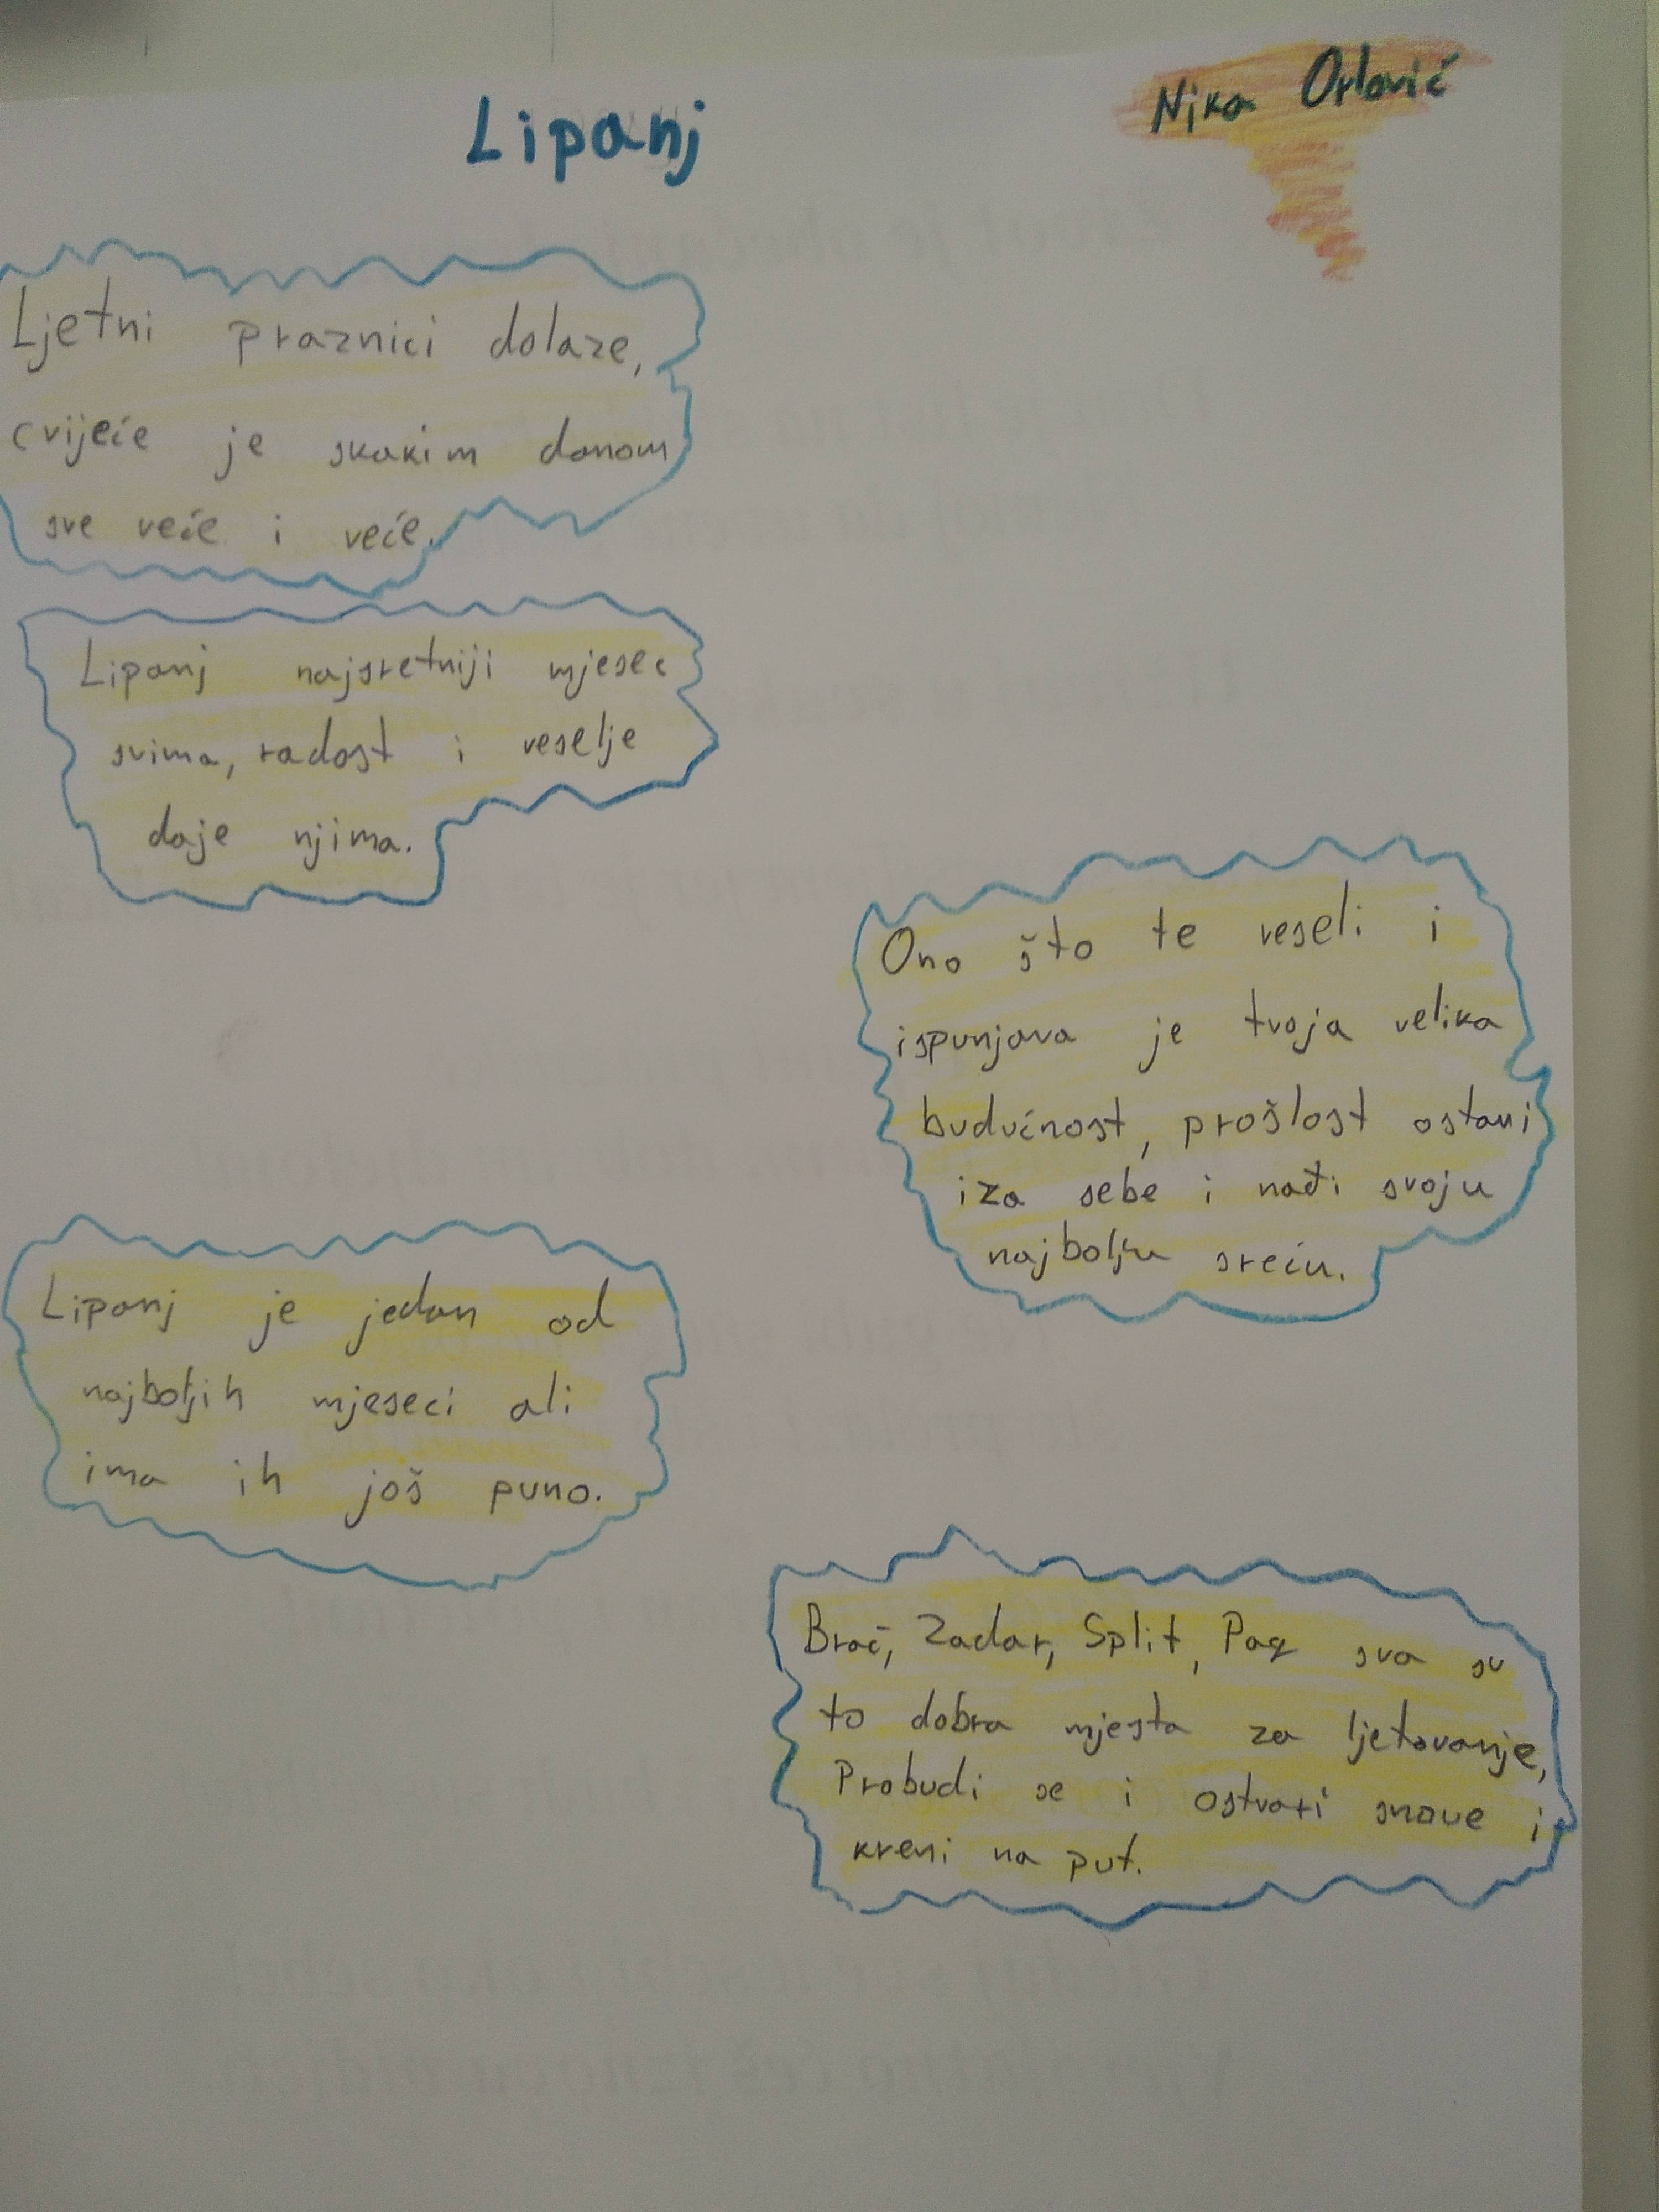 Lipanj
Nika Orlović
Ljetni praznici dolaze,
cvijeće je skakim danom
sve veće i veće.
Lipanj najsretniji mjesec
svima, radost i veselje
daje njima.
Ono što te veseli i
ispunjava je tvoja velika
budućnost, prošlost ostavi
iza sebe i nađi svoju
najbolju sreću.
Lipanj je jedan od
najboljih mjeseci ali
ima ih još puno.
Brač, Zadar, Split, Pag sva su
to dobra mjesta za ljetovanje,
Probudi se i ostvari snove i
kreni na put.